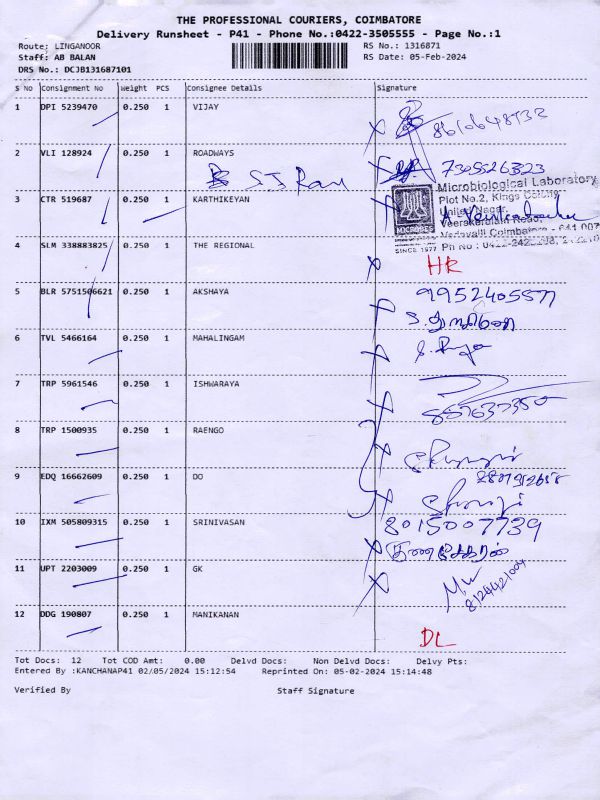 THE PROFESSIONAL COURIERS, COIMBATORE
Delivery Runsheet - P41 - Phone No.:0422-3505555 - Page No.:1
Route: LINGANOOR RS No.: 1316871
Staff: AB BALAN RS Date: 05-Feb-2024
DRS No.: DCJB131687101
S No Consignment No Weight PCS Consignee Details Signature
1 DPI 5239470 0.250 1 VIJAY
2 VLI 128924 0.250 1 ROADWAYS 7305526323
Microbiological Laboratory
3 CTR 519687 0.250 1 KARTHIKEYAN Plot No.2, Kings Colony
United Nagar,
Veerakeralam Road,
Vedavalli Coimbatore - 641 007
4 SLM 338883825 0.250 1 THE REGIONAL MICROBES
SINCE 1977 Ph No :
HR
5 BLR 5751506621 0.250 1 AKSHAYA
6 TVL 5466164 0.250 1 MAHALINGAM
7 TRP 5961546 0.250 1 ISHWARAYA
8 TRP 1500935 0.250 1 RAENGO
9 EDQ 16662609 0.250 1 DO
10 IXM 505809315 0.250 1 SRINIVASAN 8015007739
11 UPT 2203009 0.250 1 GK
12 DDG 190807 0.250 1 MANIKANAN
DL
Tot Docs: 12 Tot COD Amt: 0.00 Delvd Docs: Non Delvd Docs: Delvy Pts:
Entered By :KANCHANAP41 02/05/2024 15:12:54 Reprinted On: 05-02-2024 15:14:48
Verified By Staff Signature